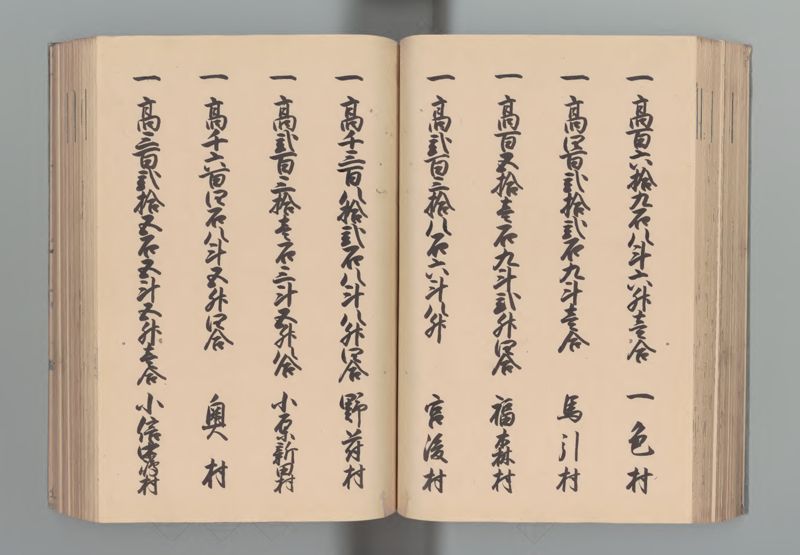 一 高百六拾九石八斗六升壱合 一色村
一 高四百弐拾弐石九斗壱合 馬引村
一 高百五拾壱石九斗弐升四合 福森村
一 高弐百三拾八石六斗八升 宮後村
一 高千三百八拾弐石八斗八升四合 野村
一 高弐百三拾壱石三斗五升八合 小原新田村
一 高千六百四石八斗五升四合 奥村
一 高三百弐拾五石五斗五升壱合 小信村